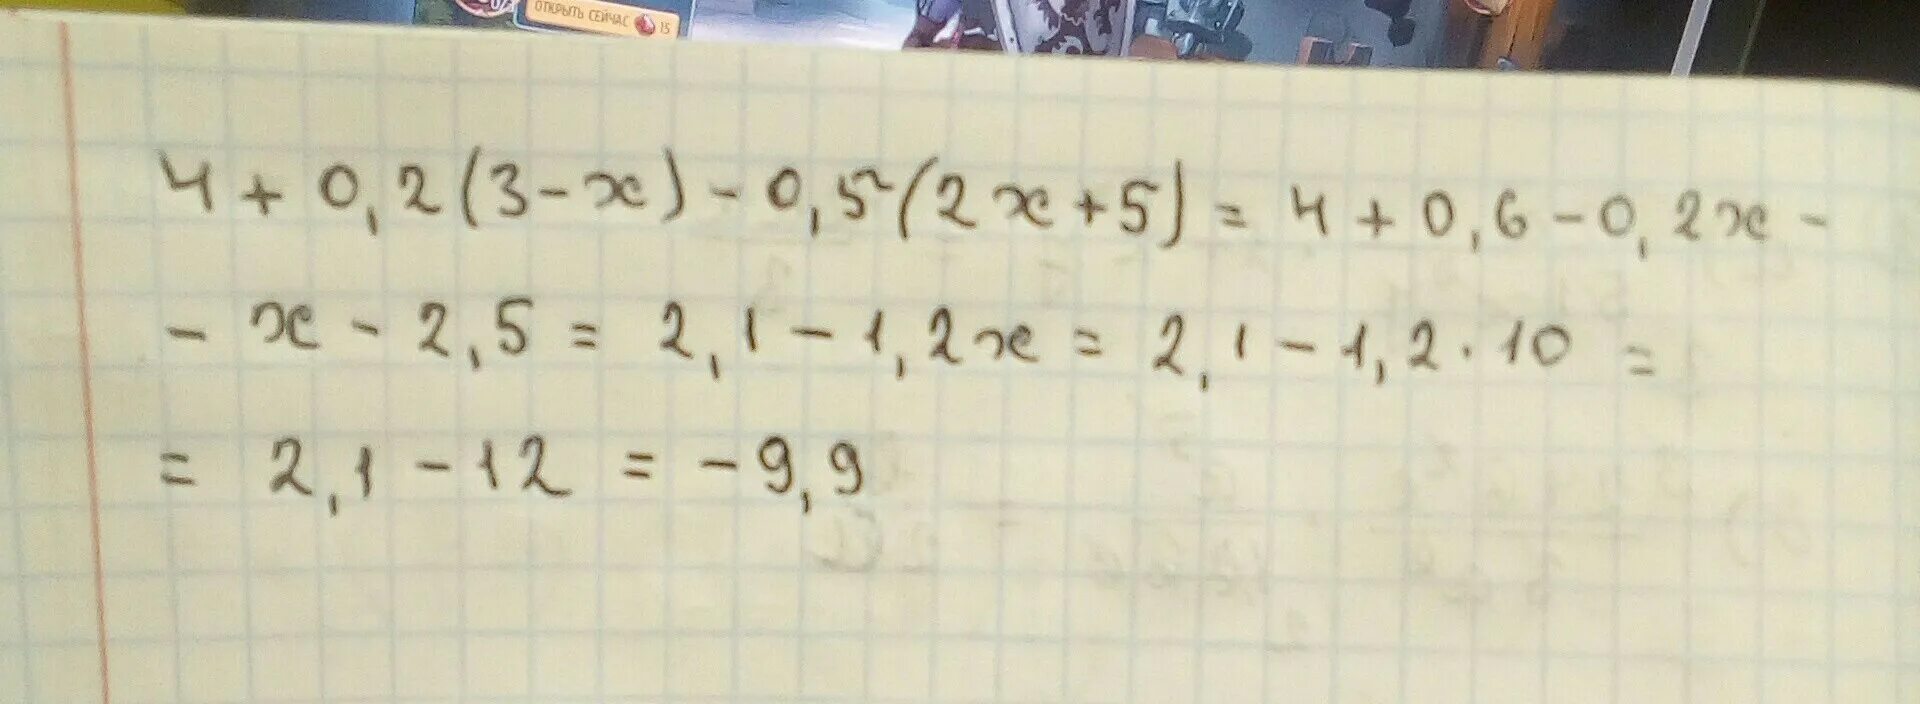 ОТКРЫТЬ СЕЙЧАС 15
4 + 0,2(3 - x) - 0,5(2x + 5) = 4 + 0,6 - 0,2x -
- x - 2,5 = 2,1 - 1,2x = 2,1 - 1,2 · 10 =
= 2,1 - 12 = -9,9